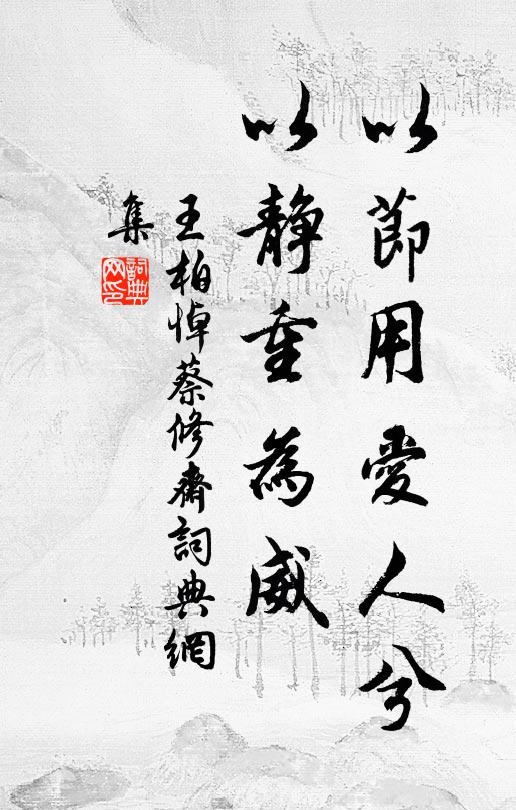 以節用愛人兮
以靜重為威
王柏悼蔡修齋詞典網
集
詞典網印